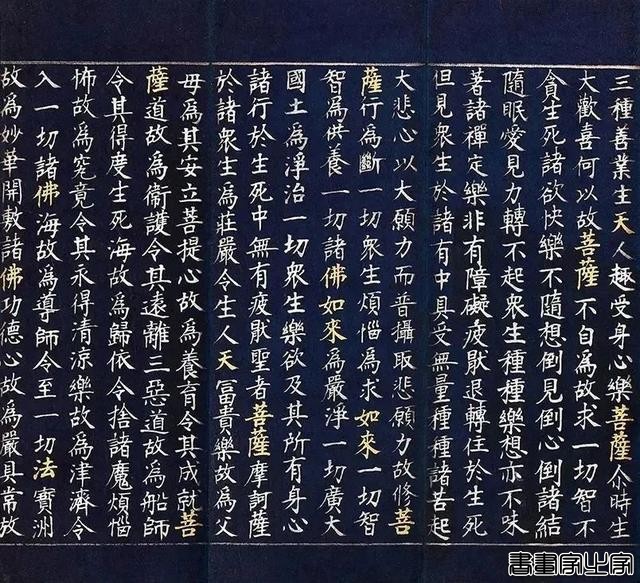 三種善業生天人趣受身心樂菩薩尒時生
大歡喜何以故菩薩不自為故求一切智不
貪生死諸欲快樂不隨想倒見倒心倒諸結
隨眠愛見力轉不起衆生種種樂想亦不味
著諸禪定樂非有障礙疲猒退轉住於生死
但見衆生於諸有中具受無量種種諸苦起
大悲心以大願力而普攝取悲願力故修菩
薩行為斷一切衆生煩惱為求如來一切智
智為供養一切諸佛如來為嚴淨一切廣大
國土為淨治一切衆生樂欲及其所有身心
諸行於生死中無有疲猒聖者菩薩摩訶薩
於諸衆生為莊嚴令生人天冨貴樂故為父
母為其安立菩提心故為養育令其成就菩
薩道故為衞護令其遠離三惡道故為船師
令其得度生死海故為歸依令捨諸魔煩惱
怖故為究竟令其永得清涼樂故為津濟令
入一切諸佛海故為導師令至一切法寶洲
故為妙華開敷諸佛功德心故為嚴具常放
書畫家之家